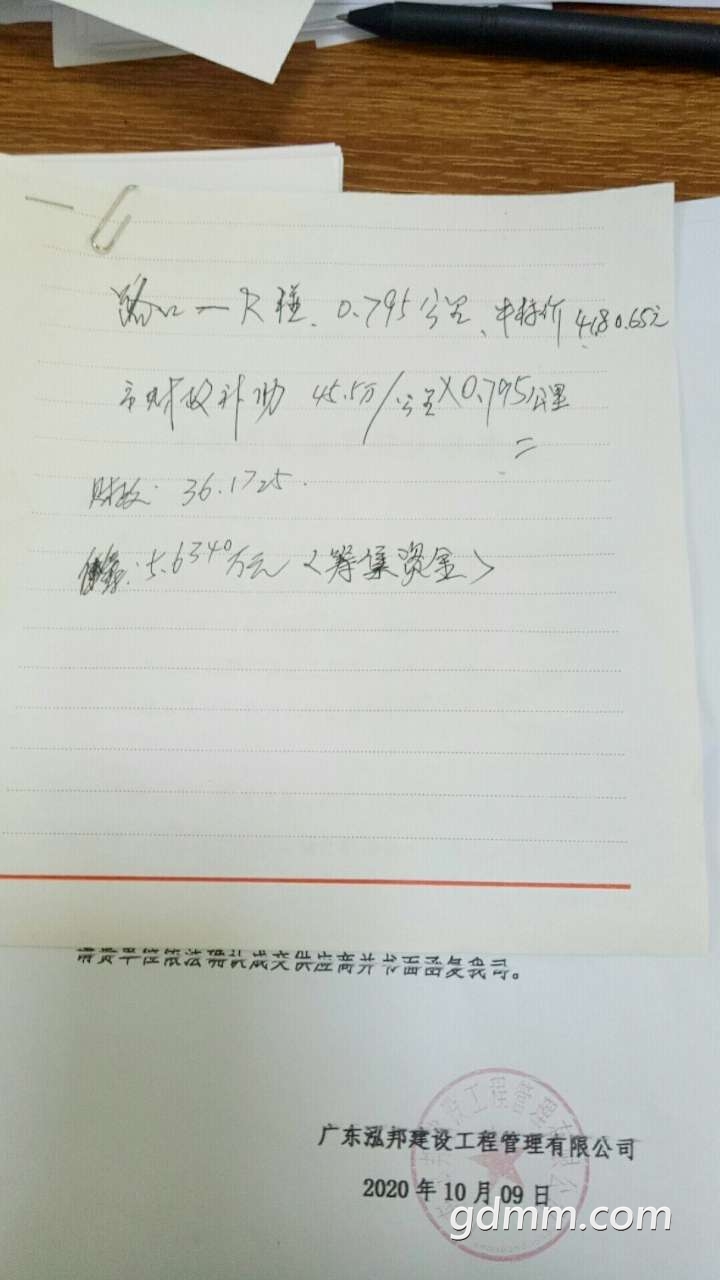 路口一尺碰、0.795公里、中标价 418065元
市财政补助 45.5万/公里X0.795公里
=
财政: 36.1725.
5.6340万元〈筹集资金〉
请贵单位依法确认成交供应商并书面函复我司。
广东泓邦建设工程管理有限公司
2020年10月09日
gdmm.com